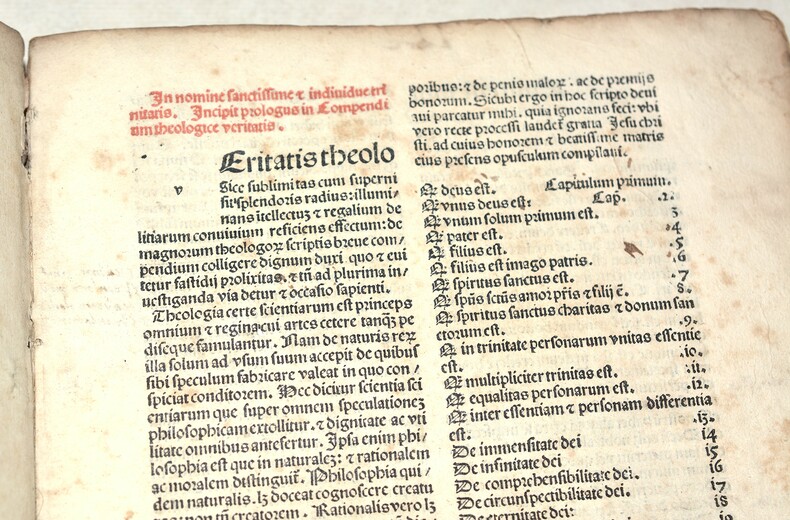 In nomine sanctissime ⁊ individue tri
nitatis. Incipit prologus in Compendi
um theologice veritatis.
Eritatis theolo
v gice sublimitas cum superni
sit splendoris radius: illumi/
nans itellectuȝ ⁊ regalium de
litiarum conuiuium reficiens effectum: de
magnorum theologoꝝ scriptis breue com/
pendium colligere dignum duxi. quo ⁊ cui
tetur fastidij prolixitas. ⁊ tñ ad plurima in/
uestiganda via detur ⁊ occasio sapienti.
Theologia certe scientiarum est princeps
omnium ⁊ regina: cui artes cetere tanqȝ pe
diseque famulantur. Nam de naturis reꝝ
illa solum ad vsum suum accepit de quibus
sibi speculum fabricare valeat in quo con/
spiciat conditorem. Hec dicitur scientia sci
entiarum que super omnem speculationeȝ
philosophicam extollitur. ⁊ dignitate ac vti
litate omnibus antefertur. Ipsa enim phi/
losophia est que in naturaleȝ: ⁊ rationalem
ac moralem distinguit̃. Philosophia qui/
dem naturalis. lȝ doceat cognoscere creatu
non tñ creatorem. Rationalis vero lȝ
poribus: ⁊ de penis maloꝝ. ac de premijs
bonorum. Sicubi ergo in hoc scripto deui
aui parcatur mihi. quia ignorans feci: vbi
vero recte processi laudet̃ gratia Jesu chri
sti. ad cuius honorem ⁊ beatissime matris
eius presens opusculum compilaui.
Qꝫ deus est. Capitulum primum.
Qꝫ vnus deus est: Cap. .2.
Qꝫ vnium solum primum est. 3
Qꝫ pater est. .4
Qꝫ filius est. .5
Qꝫ filius est imago patris. .6
Qꝫ spiritus sanctus est. .7
Qꝫ spũs sctũs amor pr̃is ⁊ filij ẽ. 8.
Qꝫ spiritus sanctus charitas ⁊ donum san
ctorum est. .9.
Qꝫ in trinitate personarum vnitas essentie
est. .10.
Qꝫ multipliciter trinitas est. .11.
Qꝫ equalitas personarum est. .12.
Qꝫ inter essentiam ⁊ personam differentia
est. .13.
De immensitate dei 14
De infinitate dei 15
De comprehensibilitate dei. 16
De circunspectibilitate dei. 17
De eternitate dei: 18
19